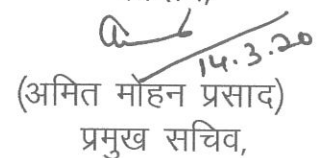 14.3.20
(अमित मोहन प्रसाद)
प्रमुख सचिव,